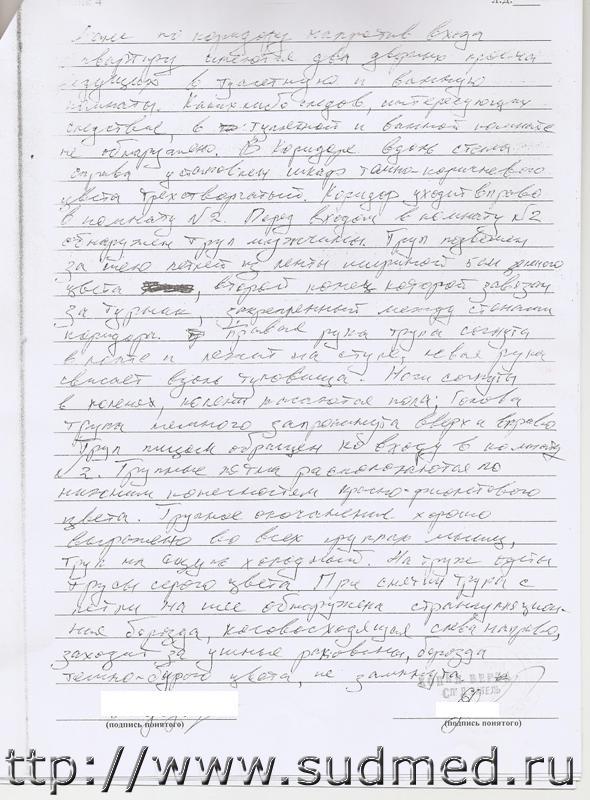 Л.Д.
Далее по коридору напротив входа
квартиру имеются два дверных проема
ведущих в туалетную и ванную
комнаты. Каких-либо следов, интересующих
следствие, в туалетной и ванной комнате
не обнаружено. В коридоре вдоль стены
справа установлен шкаф тёмно-коричневого
цвета трехстворчатый. Коридор уходит вправо
в комнату №2. Перед входом в комнату №2
обнаружен труп мужчины. Труп подвешен
за шею петлей из ленты шириной 5см
цвета, второй конец которой завязан
за турник, закрепленный между стенами
коридора. Правая рука трупа согнута
в локте и лежит на стуле, левая рука
свисает вдоль туловища. Ноги согнуты
в коленях, колени касаются пола; Голова
трупа немного запрокинута вверх и вправо
Труп лицом обращен ко входу в комнату
№2. Трупные пятна расположены по
нижним конечностям красно-фиолетового
цвета. Трупное окоченение хорошо
выражено во всех группах мышц,
труп на ощупь холодный. На трупе одеты
трусы серого цвета. При снятии трупа с
петли на шее обнаружена странгуляцион-
ная борозда, косовосходящая слева направо,
заходит за ушные раковины, борозда
темно-бурого цвета, не замкнута
КОПИЯ ВЕРНА
СЛЕДОВАТЕЛЬ
(подпись понятого) (подпись понятого)
ttp://www.sudmed.ru